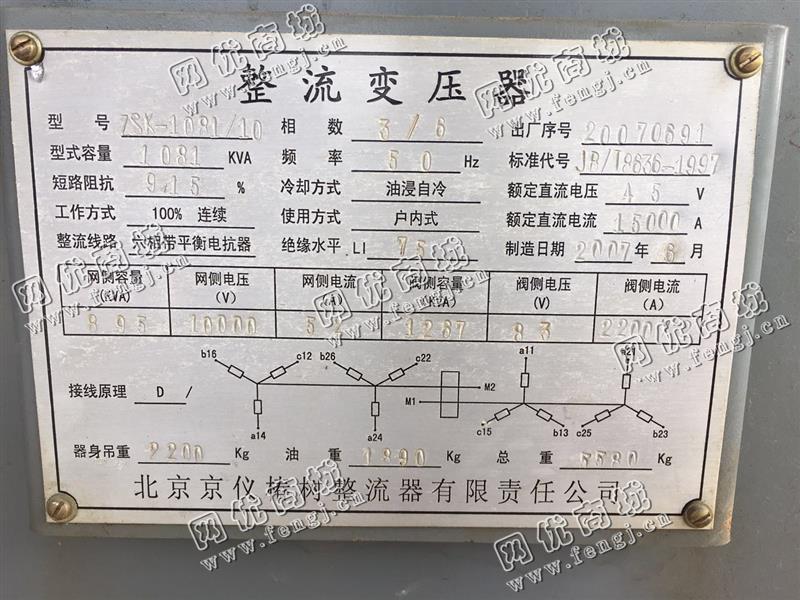 整流变压器
型 号 ZSK-1081/10 相 数 3/6 出厂序号 20070691
型式容量 1081 KVA 频 率 50 Hz 标准代号 JB/T8636-1997
短路阻抗 9.15 % 冷却方式 油浸自冷 额定直流电压 45 V
工作方式 100% 连续 使用方式 户内式 额定直流电流 15000 A
整流线路 六相带平衡电抗器 绝缘水平 LI 75 制造日期 2007 年 6 月
网侧容量 网侧电压 网侧电流 阀侧容量 阀侧电压 阀侧电流
(KVA) (V) (A) (KVA) (V) (A)
895 10000 52 1267 83
b16 c12 b26 c22 a11 a21
接线原理 D /
M2
M1
a14 a24 c15 b13 c25 b23
器身吊重 2200 Kg 油 重 1390 Kg 总 重 Kg
北京京仪椿树整流器有限责任公司
网优商城
www.fengj.cn
网优商城
www.fengj.cn
网优商城
www.fengj.cn
网优商城
www.fengj.cn
网优商城
www.fengj.cn
网优商城
www.fengj.cn